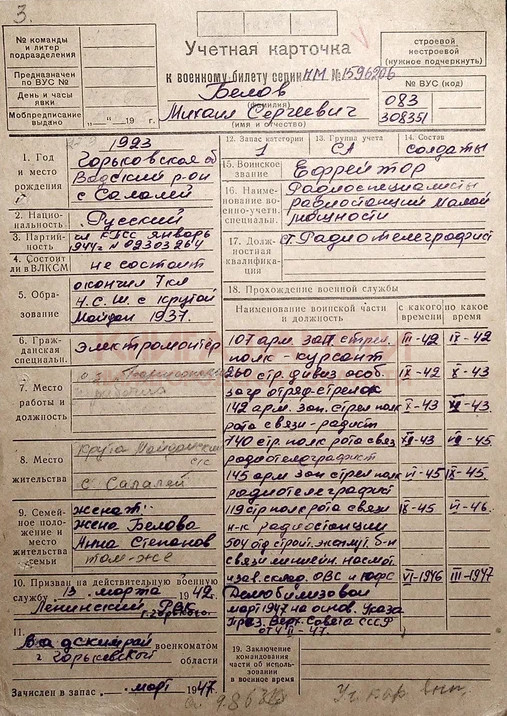 3.
№ команды
и литер
подразделения
Предназначен
по ВУС №
День и часы
явки
Мобпредписание
выдано „ “ 19 г.
Учетная карточка
к военному билету серии НМ №1596206
Белов
(фамилия)
Михаил Сергеевич
(имя и отчество)
строевой
нестроевой
(нужное подчеркнуть)
№ ВУС (код)
083
308351
1. Год
и место
рождения
1923
Горьковская об
Вадский р-он
с Салалей
2. Национальность Русский
3. Партийность
чл КПСС январь
1944г N 02303264
4. Состоит
ли в ВЛКСМ не состоит
5. Образование
окончил 7 кл
Н.С.Ш. с Крутой
Майдан 1937.
6. Гражданская
специальн. Электромонтёр
7. Место
работы и
должность
8. Место
жительства
Круто Майданский
с/с
с Салалей
9. Семейное положение и
место
жительства
семьи
женат:
жена Белова
Анна Степанов
там-же
10. Призван на действительную военную
службу 13. марта 1942 г.
Ленинский РВК
г. Горького.
11.
Вадским рай военкоматом
Горьковской области
Зачислен в запас март 1947.
12. Запас категории
1
13. Группа учета
СА
14. Состав
солдаты
15. Воинское
звание Ефрейтор
16. Наименование военно-учетн.
специальн.
Радиоспециалисты
радиостанций малой
мощности
17. Должностная
квалификация
Радиотелеграфист
18. Прохождение военной службы
Наименование воинской части
и должность
с какого
времени
по какое
время
107 арм. зап. стрел. III-42 IX-42
полк - курсант
260 стр. дивиз. особ. IX-42 X-43
загр отряд-стрелок
142 арм. зап. стрел полк X-43
рота связи - радист
740 стр полк рота связ -43 -45
радиотелеграфист
145 арм зап стрел полк VI-45 IX-45
радиотелеграфист
119 стр полк рота связи IX-45 VI-46.
н-к радиостанции
504 отд строит. эксплуат. б-н
связи
и зав. склад. ОВС VI-1946 III-1947
Демобилизован
март 1947 на основ. Указа
През. Верх. Совета СССР
от 4 II-47.
19. Заключение
командования
части об использовании
в военное время